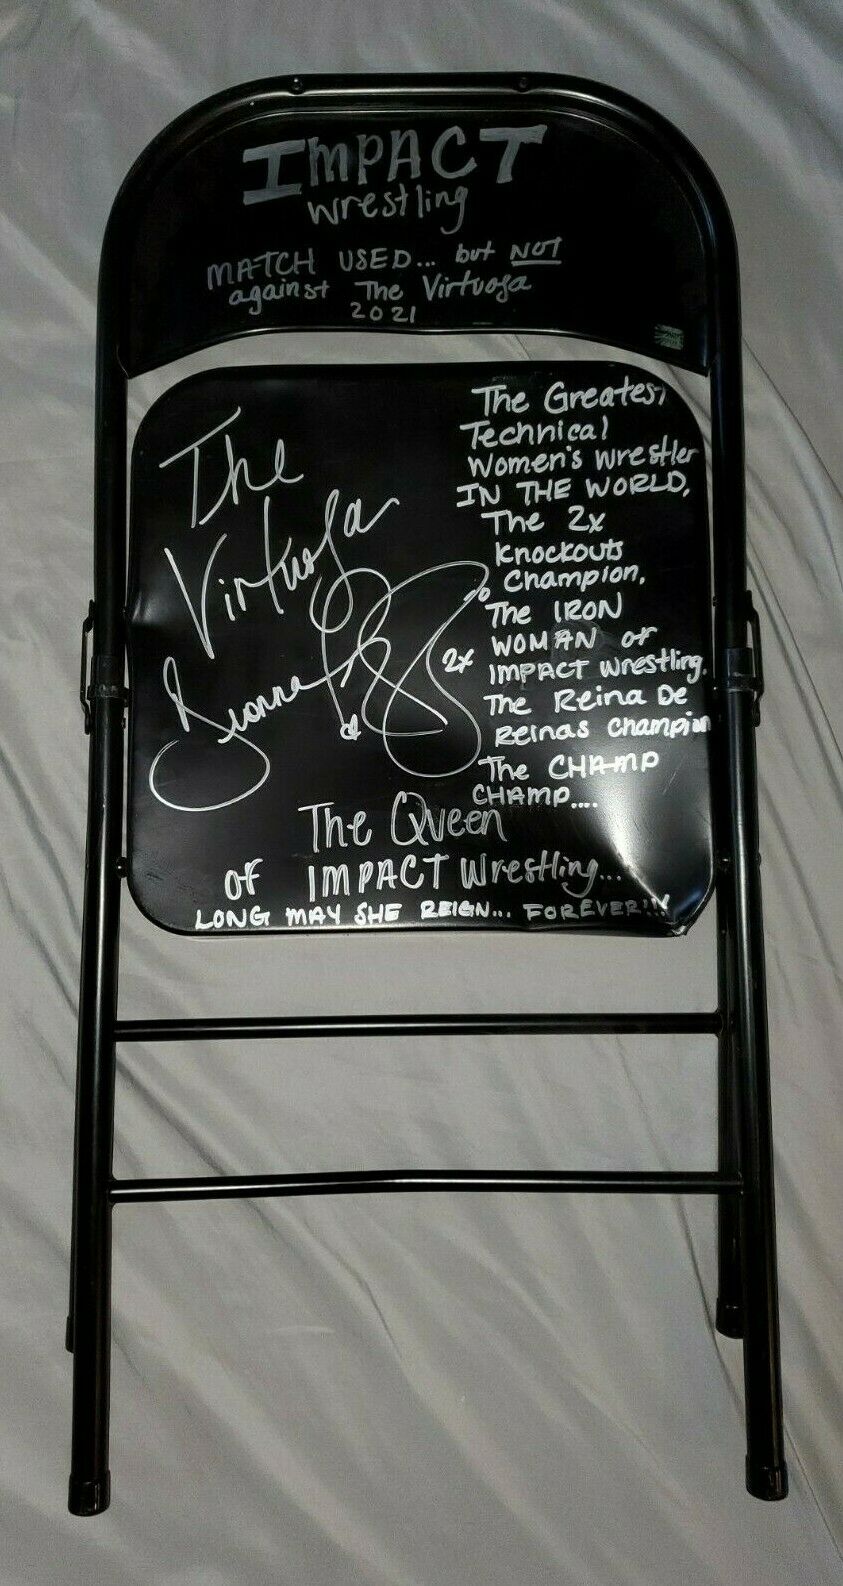 IMPACT
wrestling
MATCH USED... but NOT
against The Virtuosa
2021
The
Virtuosa
Deonna
The Greatest
Technical
Women's wrestler
IN THE WORLD.
The 2x
Knockouts
Champion.
The IRON
WOMAN of
IMPACT Wrestling.
2x
The Reina De
Reinas Champion
The CHAMP
CHAMP....
The Queen
of IMPACT Wrestling...
LONG MAY SHE REIGN... FOREVER!!!